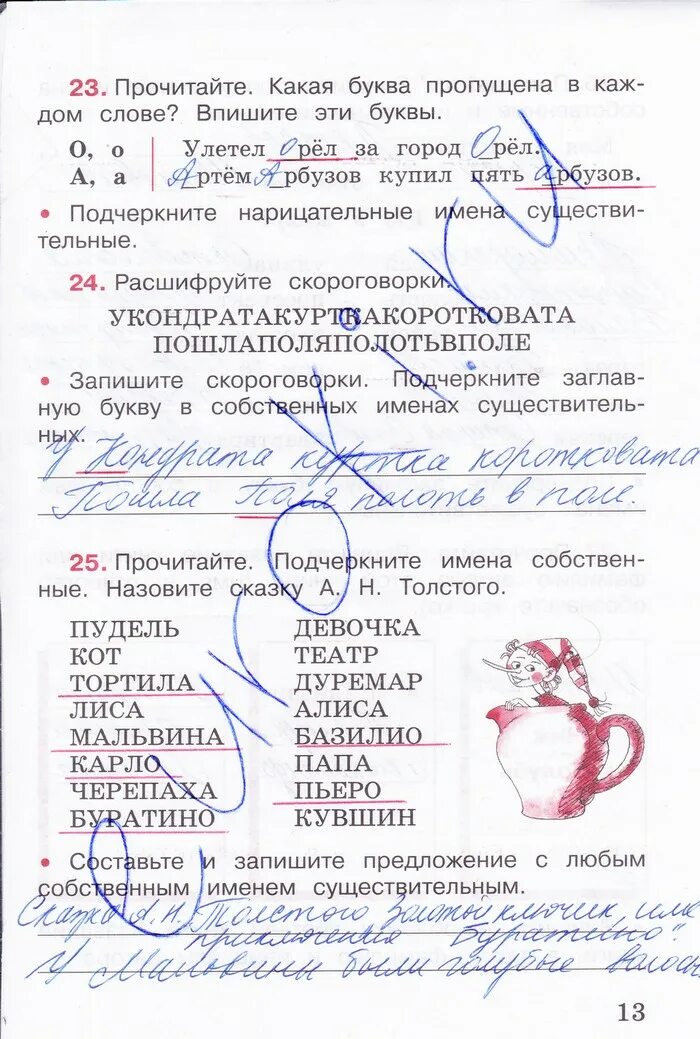 23. Прочитайте. Какая буква пропущена в каж-
дом слове? Впишите эти буквы.
О, о Улетел орёл за город Орёл.
А, а Артём Арбузов купил пять арбузов.
• Подчеркните нарицательные имена существи-
тельные.
24. Расшифруйте скороговорки.
УКОНДРАТАКУРТКАКОРОТКОВАТА
ПОШЛАПОЛЯПОЛОТЬВПОЛЕ
• Запишите скороговорки. Подчеркните заглав-
ную букву в собственных именах существитель-
ных.
У Кондрата куртка коротковата
Пошла Поля полоть в поле.
25. Прочитайте. Подчеркните имена собствен-
ные. Назовите сказку А. Н. Толстого.
ПУДЕЛЬ ДЕВОЧКА
КОТ ТЕАТР
ТОРТИЛА ДУРЕМАР
ЛИСА АЛИСА
МАЛЬВИНА БАЗИЛИО
КАРЛО ПАПА
ЧЕРЕПАХА ПЬЕРО
БУРАТИНО КУВШИН
• Составьте и запишите предложение с любым
собственным именем существительным.
Сказка А. Н. Толстого Золотой ключик, или
приключения Буратино".
У Мальвины были голубые волосы
13
e-uroki.ru